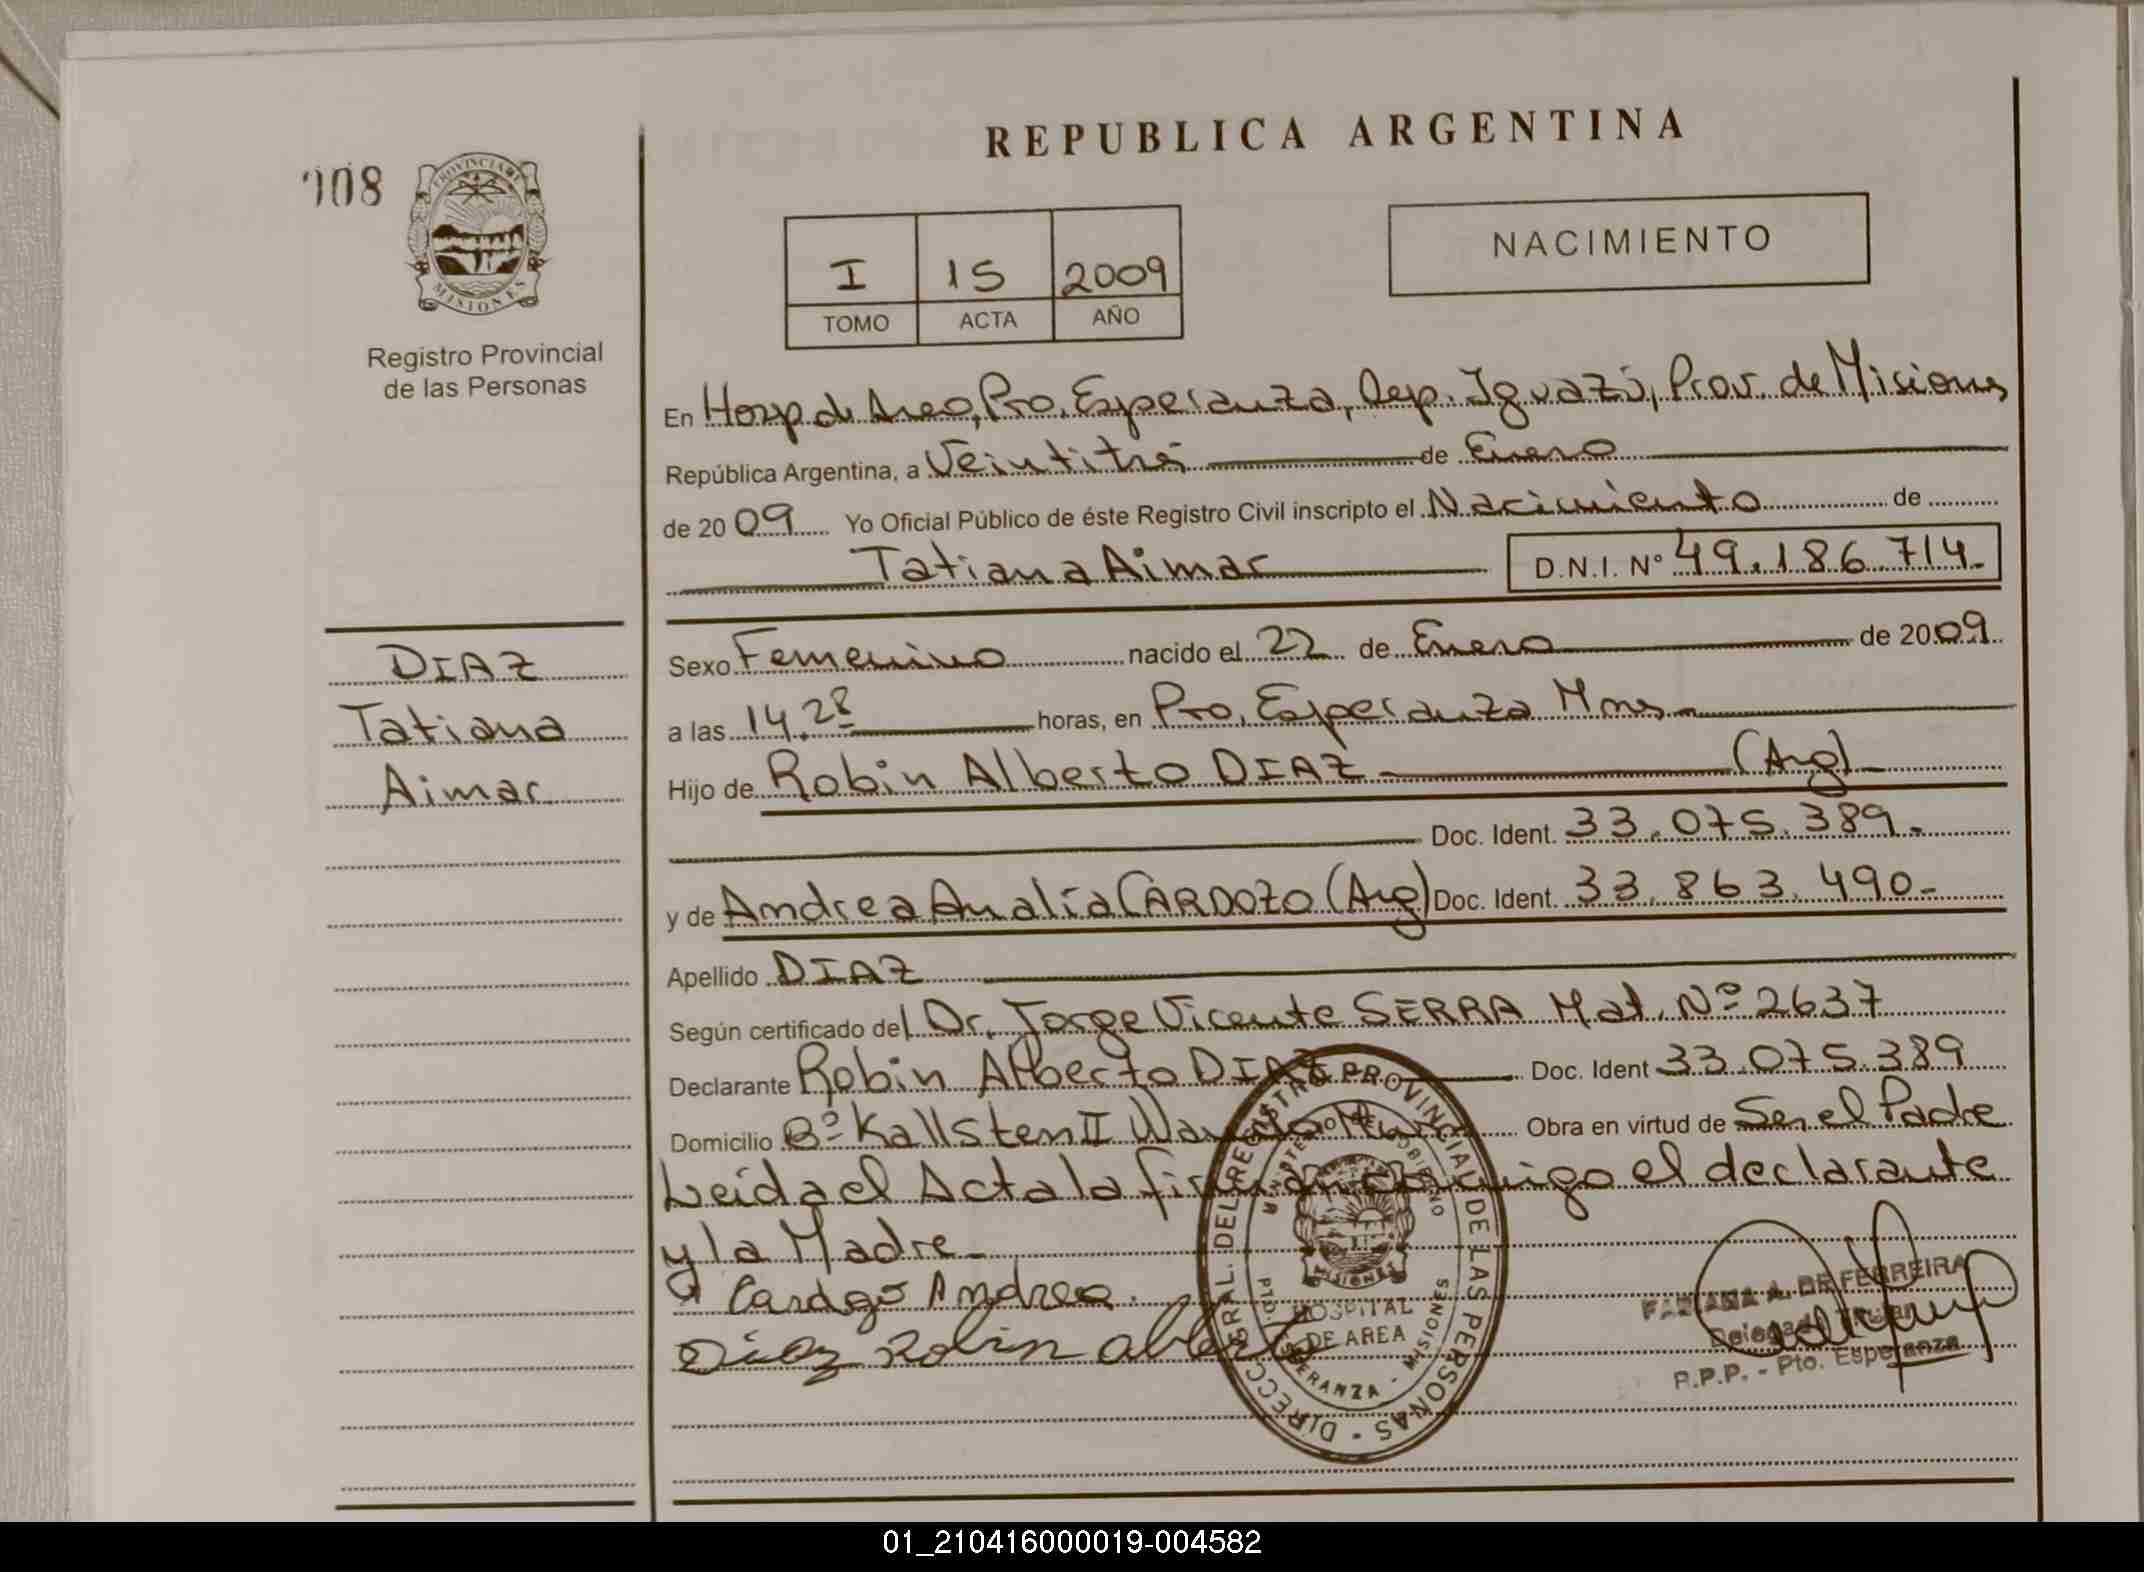 008
PROVINCIA DE
MISIONES
Registro Provincial
de las Personas
REPUBLICA ARGENTINA
I 15 2009
TOMO ACTA AÑO
NACIMIENTO
En Hosp de Area, Pto. Esperanza, Dep. Iguazú, Prov. de Misiones
República Argentina, a Veintitrés de Enero
de 2009 Yo Oficial Público de éste Registro Civil inscripto el Nacimiento de
Tatiana Aimar D.N.I. Nº 49.186.714.-
DIAZ
Tatiana
Aimar
Sexo Femenino nacido el 22 de Enero de 2009
a las 14.28 horas, en Pto. Esperanza Mnes.-
Hijo de Robin Alberto DIAZ (Arg)
Doc. Ident. 33.075.389.-
y de Andrea Analía CARDOZO (Arg) Doc. Ident. 33.863.490-
Apellido DIAZ
Según certificado del Dr. Jorge Vicente SERRA Mat. Nº 2637
Declarante Robin Alberto DIAZ Doc. Ident 33.075.389
Domicilio Bº Kallsten II Obra en virtud de Ser el Padre
Leida el Acta la firman conmigo el declarante
y la Madre.-
Cardozo Andrea.
Diaz Robin alberto
DIRECC. GRAL. DEL REGISTRO PROVINCIAL DE LAS PERSONAS
MINISTERIO DE GOBIERNO
MISIONES
HOSPITAL
DE AREA
PTO. ESPERANZA - MISIONES
FABIANA A. DE FERREIRA
Delegada Titular
R.P.P. - Pto. Esperanza
01_210416000019-004582